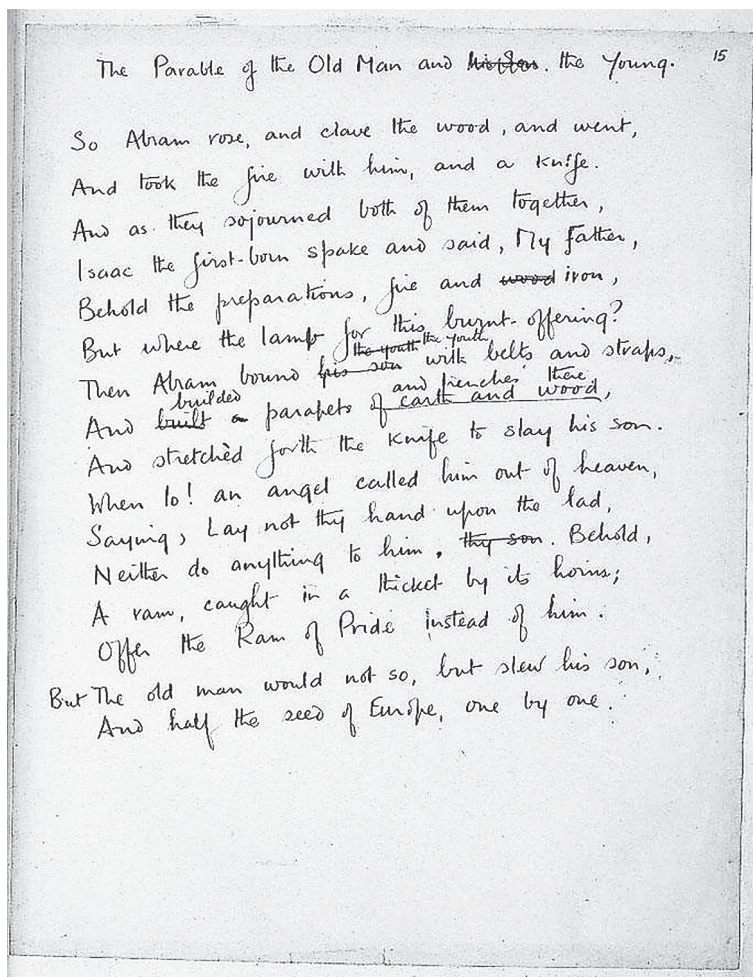 15
The Parable of the Old Man and his Son. the Young.
So Abram rose, and clave the wood, and went,
And took the fire with him, and a knife.
And as they sojourned both of them together,
Isaac the first-born spake and said, My Father,
Behold the preparations, fire and wood iron,
But where the lamb for this burnt-offering?
the youth the youth
Then Abram bound his son with belts and straps,
builded and trenches there
And built a parapets of earth and wood,
And stretchèd forth the knife to slay his son.
When lo! an angel called him out of heaven,
Saying, Lay not thy hand upon the lad,
Neither do anything to him. thy son. Behold,
A ram, caught in a thicket by its horns;
Offer the Ram of Pride instead of him.
But The old man would not so, but slew his son,
And half the seed of Europe, one by one.